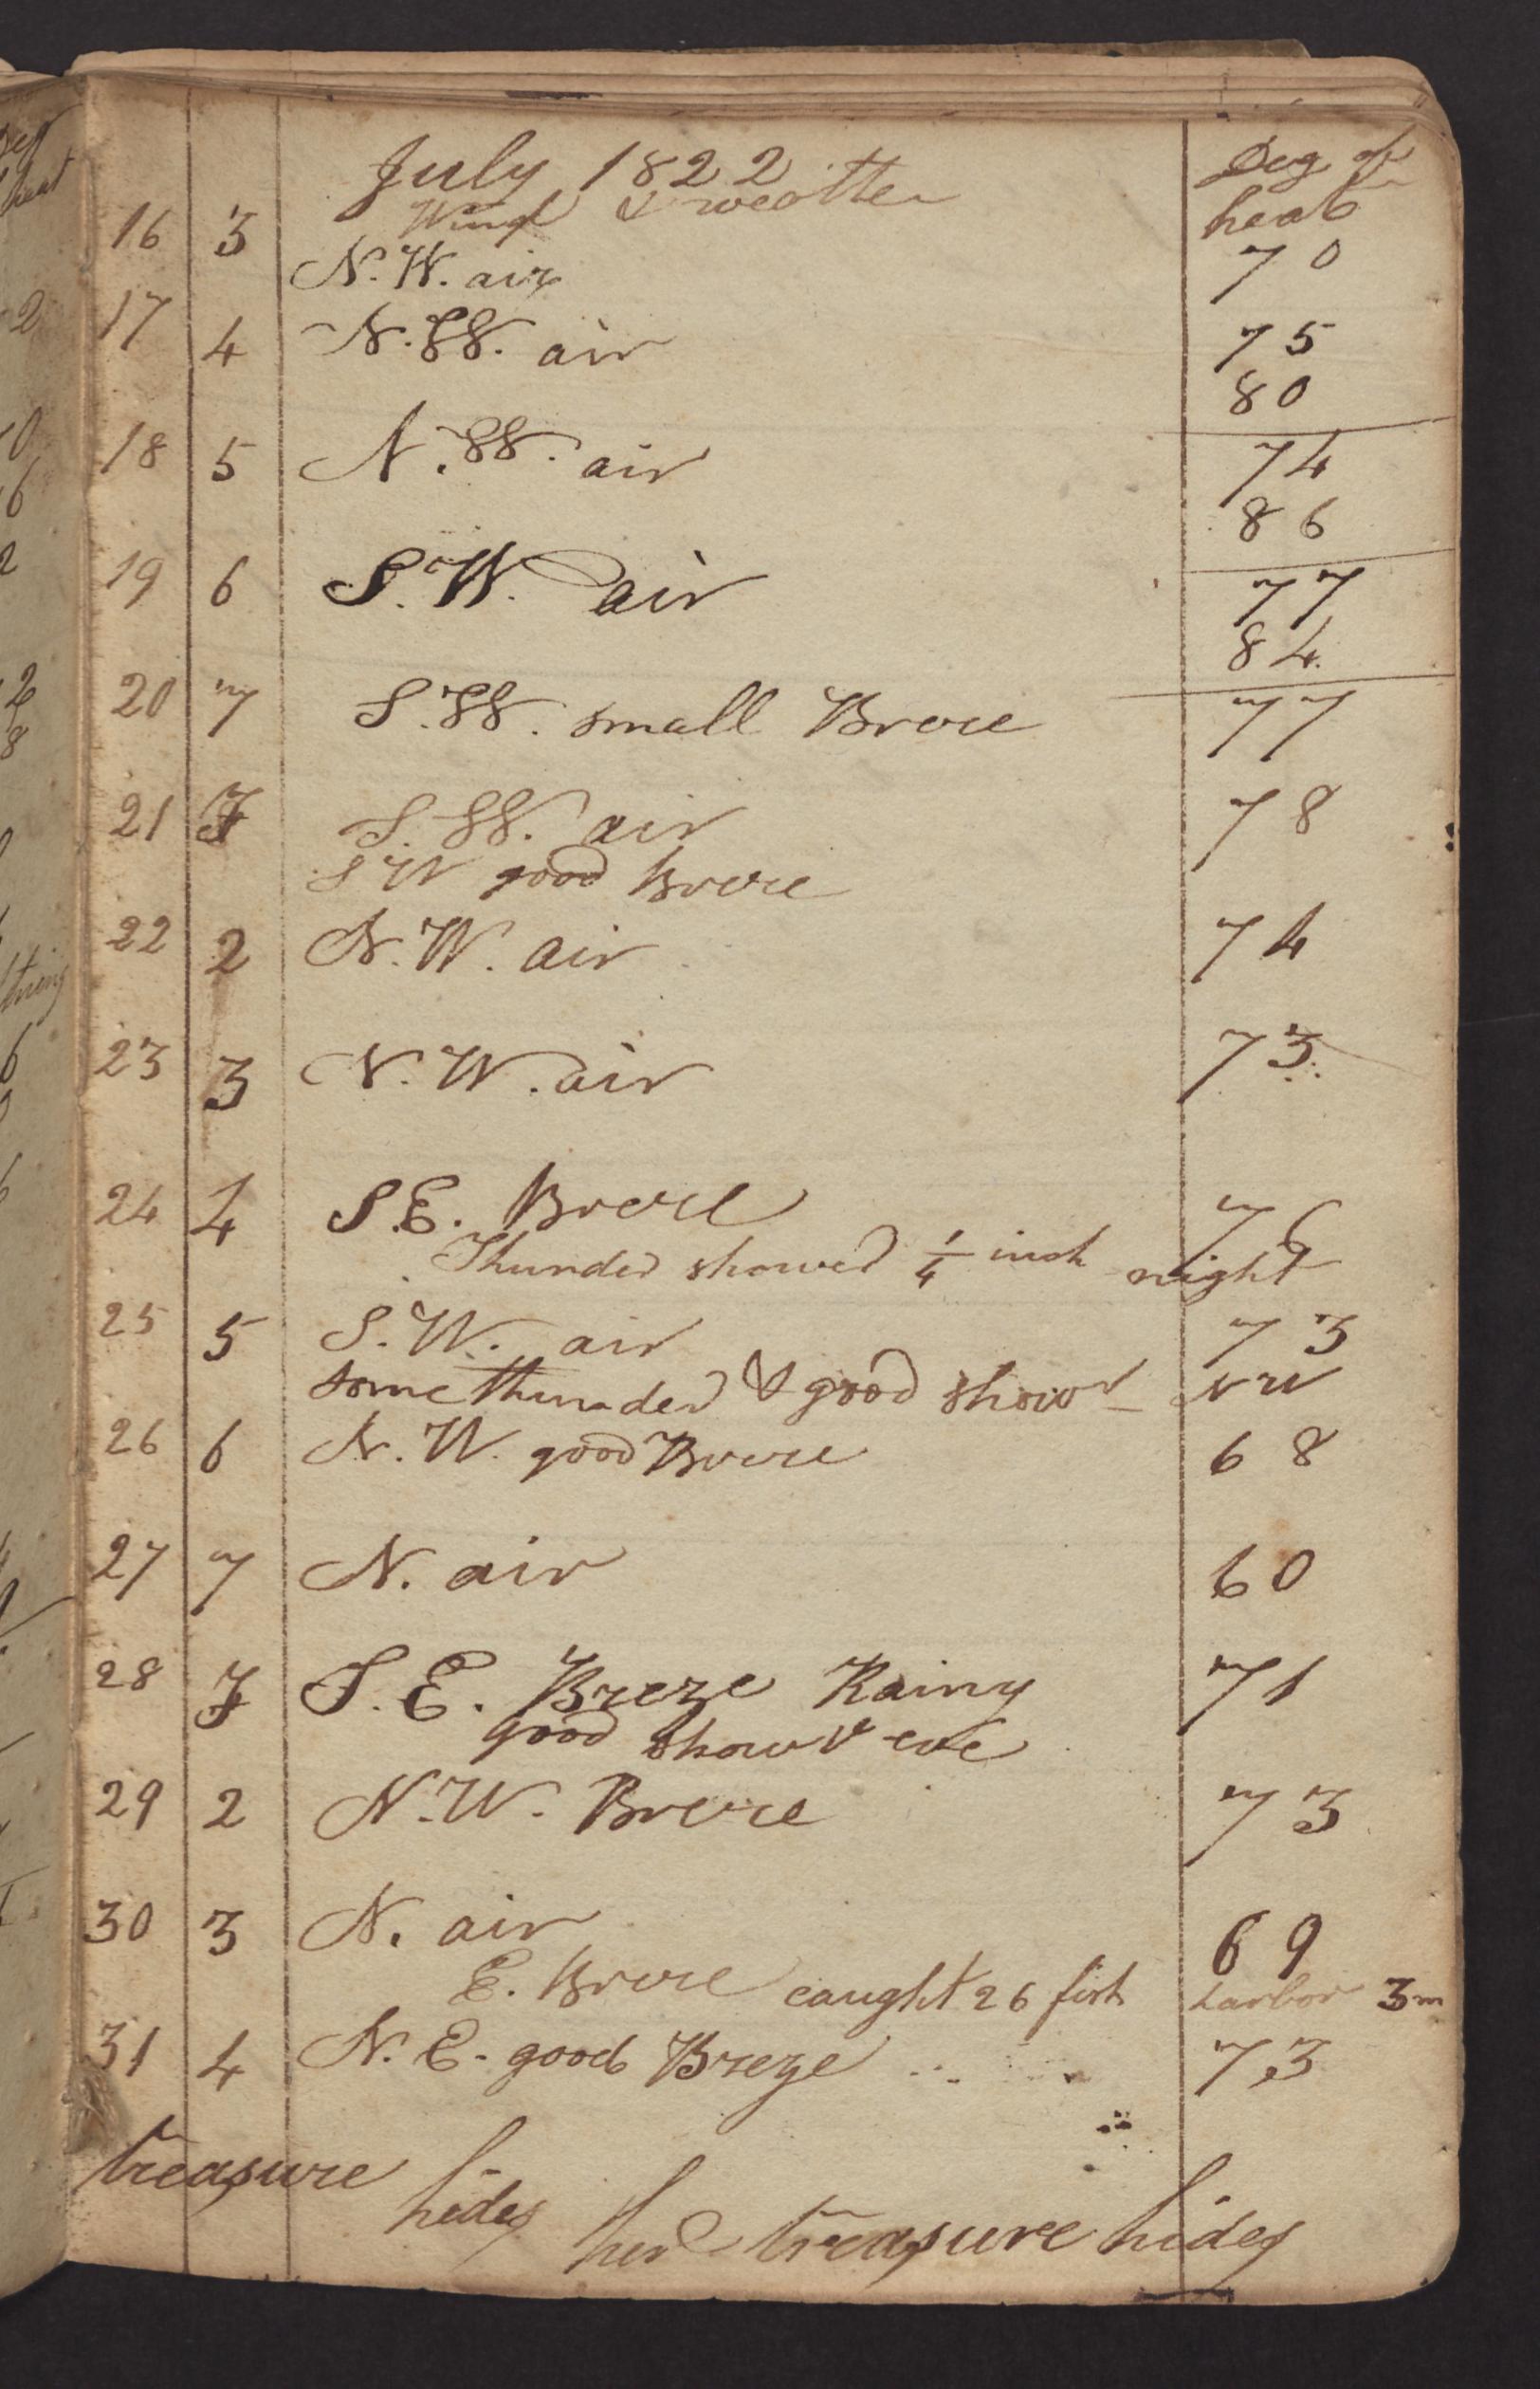 July 1822 Deg of
Wind & weather heat
16 3 N.W. air 70
17 4 N.W. air 75
80
18 5 N.W. air 74
86
19 6 S.W. air 77
84
20 7 S.W. small Breze 77
21 S.W. air 78
S W good Breze
22 2 N.W. air 74
23 3 N.W. air 73
24 4 S.E. Breze 76
Thunder shower 1/4 inch night
25 5 S.W. air 73
some thunder & good showr N W
26 6 N.W. good Breze 68
27 7 N. air 60
28 S.E. Breze Rainy 71
good showr eve
29 2 N.W. Breze 73
30 3 N. air 69
E. Breze caught 26 fish harbor 3m
31 4 N.E. good Breze 73
treasure hides her treasure hides